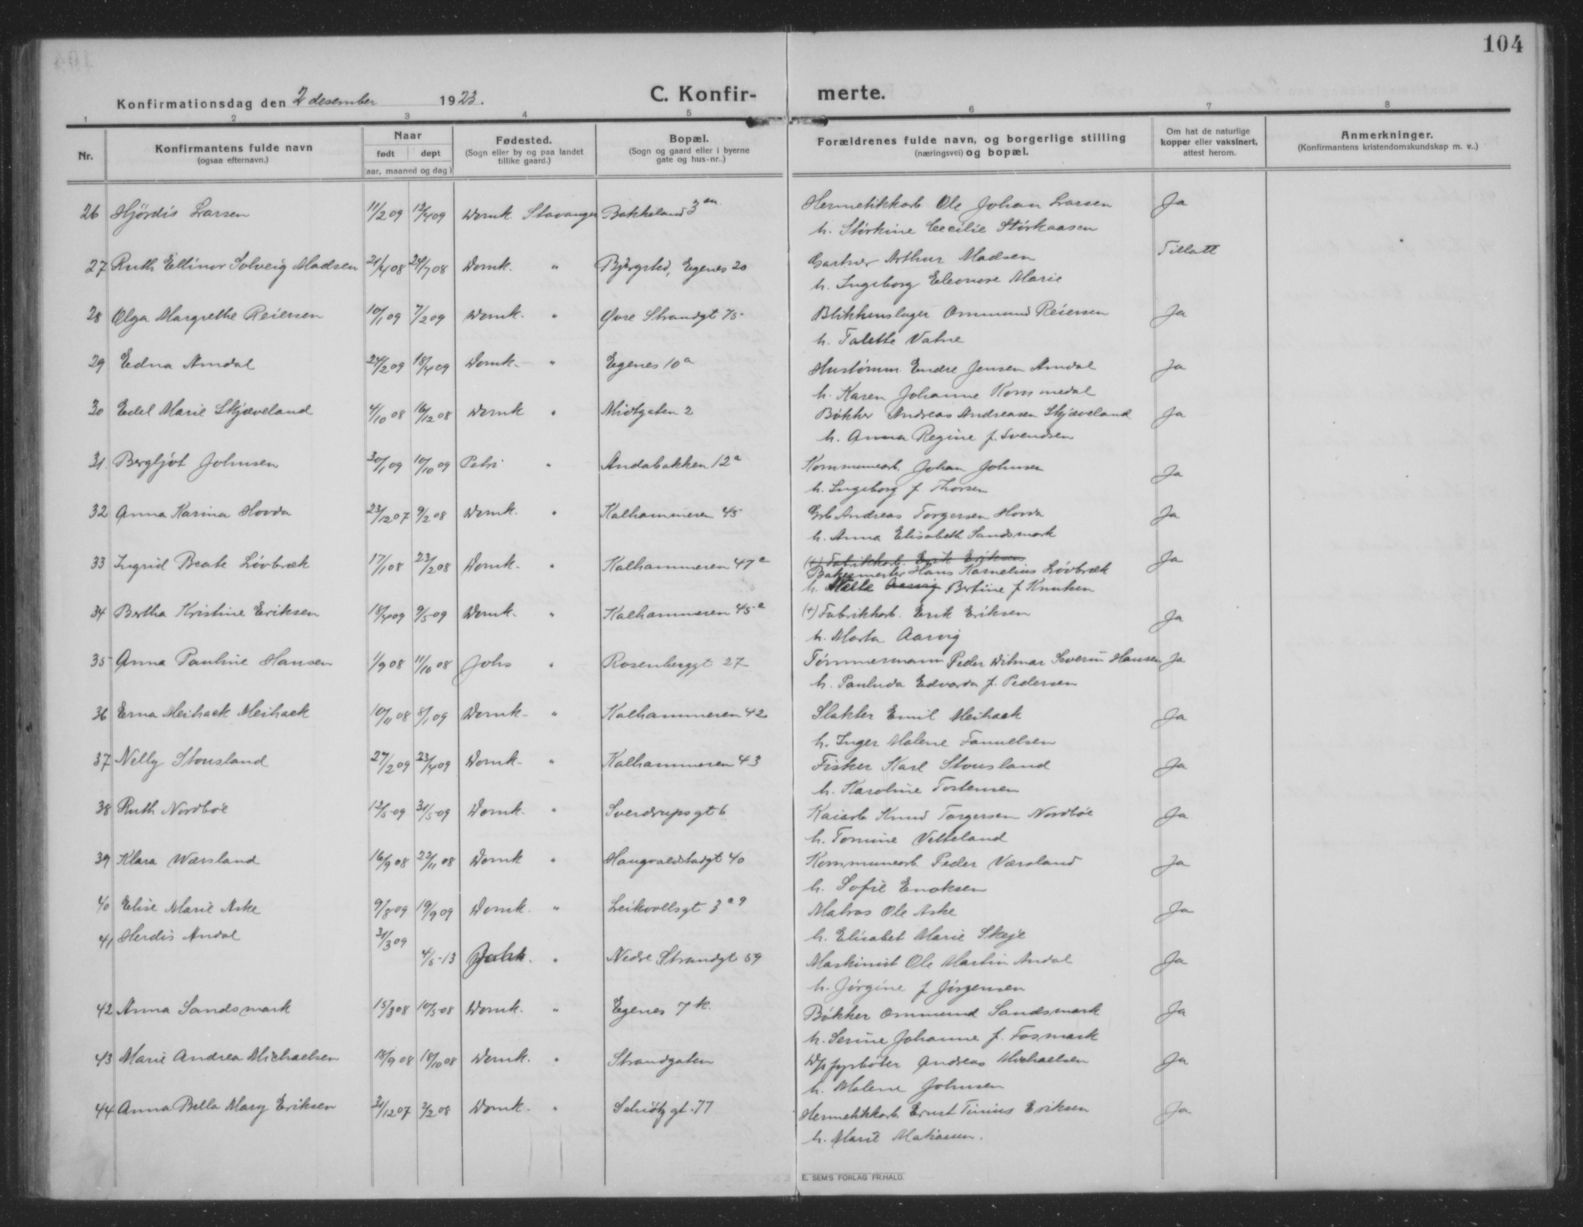 104
Konfirmationsdag den 2 desember 1923.
C. Konfir- merte.
1 2 3 4 5 6 7 8
Nr.
Konfirmantens fulde navn
(ogsaa efternavn.)
Naar
født dept
(aar, maaned og dag)
Fødested.
(Sogn eller by og paa landet
tillike gaard.)
Bopæl.
(Sogn og gaard eller i byerne
gate og hus-nr.)
Forældrenes fulde navn, og borgerlige stilling
(næringsvei) og bopæl.
Om hat de naturlige
kopper eller vaksinert,
attest herom.
Anmerkninger.
(Konfirmantens kristendomskundskap m. v.)
26 Hjördis Larsen 11/2 09 12/4 09 Domk Stavanger Bakkeland 3 Hermetikkarb Ole Johan Larsen Ja
h. Störkine Cecilie Störkaasen
27 Ruth Ellinor Solveig Madsen 21/4 08 29/7 08 Domk. " Bjergsted, Egenes 20 Gartner Arthur Madsen Tillatt
h. Ingeborg Eleonore Marie
28 Olga Margrethe Reiersen 10/1 09 7/2 09 Domk. " Øvre Strandgt 75 Blikkenslager Ommund Reiersen Ja
h. Talette Vatne
29 Edna Amdal 24/2 09 18/4 09 Domk. " Egenes 10a Hustømm Endre Jensen Amdal Ja
h. Karen Johanne Kommedal
30 Edel Marie Skjæveland 4/10 08 16/12 08 Domk " Midtgaten 2 Bøkker Andreas Andreasen Skjæveland Ja
h. Anna Regine f. Svendsen
31 Bergljot Johnsen 30/1 09 10/10 09 Petri " Andabakken 12a Kommunearb. Johan Johnsen Ja
h. Ingeborg f. Thorsen
32 Anna Karina Hovda 23/12 07 9/2 08 Domk. " Kalhammeren 45 Arb Andreas Torgersen Hovda Ja
h. Anna Elisabeth Sandsmark
33 Ingrid Beate Lövbræk 17/1 08 23/2 08 Domk. " Kalhammeren 47a (+) Fabrikkarb. Erik Eriksen Ja
Bakermester Hans Kornelius Lövbræk
h. Aarvig Bertine f. Knutsen
34 Bertha Kristine Eriksen 18/4 09 9/5 09 Domk. " Kalhammeren 45a (+) Fabrikkarb. Erik Eriksen Ja
h. Marta Aarvig
35 Anna Pauline Hansen 1/9 08 11/10 08 Johs " Rosenberggt 27 Tømmermann Peder Ditmar Severin Hansen Ja
h. Paulude Edvarda f. Pedersen
36 Erna Meihack Meihack 10/11 08 8/1 09 Domk. " Kalhammeren 42 Slakter Emil Meihack Ja
h. Inger Malene Samuelsen
37 Nelly Stousland 27/2 09 23/4 09 Domk. " Kalhammeren 43 Fisker Karl Stousland Ja
h. Karoline Torstensen
38 Ruth Nordböe 12/5 09 31/5 09 Domk. " Sverdrupsgt 6 Kaiarb Knud Torgersen Nordböe Ja
h. Tomine Velteland
39 Klara Wærsland 16/9 08 22/11 08 Domk " Haugvaldstadgt 40 Kommunearb Peder Værsland Ja
h. Sofie Enoksen
40 Elise Marie Aske 9/8 09 19/9 09 Domk. " Leikvollsgt 3 Matros Ole Aske Ja
h. Elisabet Marie Skeje
41 Herdis Andal 21/3 09 4/5 13 " Nedre Strandgt 59 Maskinist Ole Martin Andal Ja
h. Jørgine f. Jörgensen
42 Anna Sandsmark 15/3 08 10/5 08 Domk. " Egenes 7 k. Bøkker Ommund Sandsmark Ja
h. Serine Johanne f. Fosmark
43 Marie Andrea Michaelsen 18/9 08 18/10 08 Domk. " Strandgaten D/s fyrbøter Andreas Michaelsen Ja
h. Malene Johnsen
44 Anna Bella Mary Eriksen 31/12 07 3/2 08 Domk. " Schiötzgt. 77 Hermetikkarb Ernst Tinius Eriksen Ja
h. Marie Matiassen.
E. SEMS FORLAG FR.HALD.